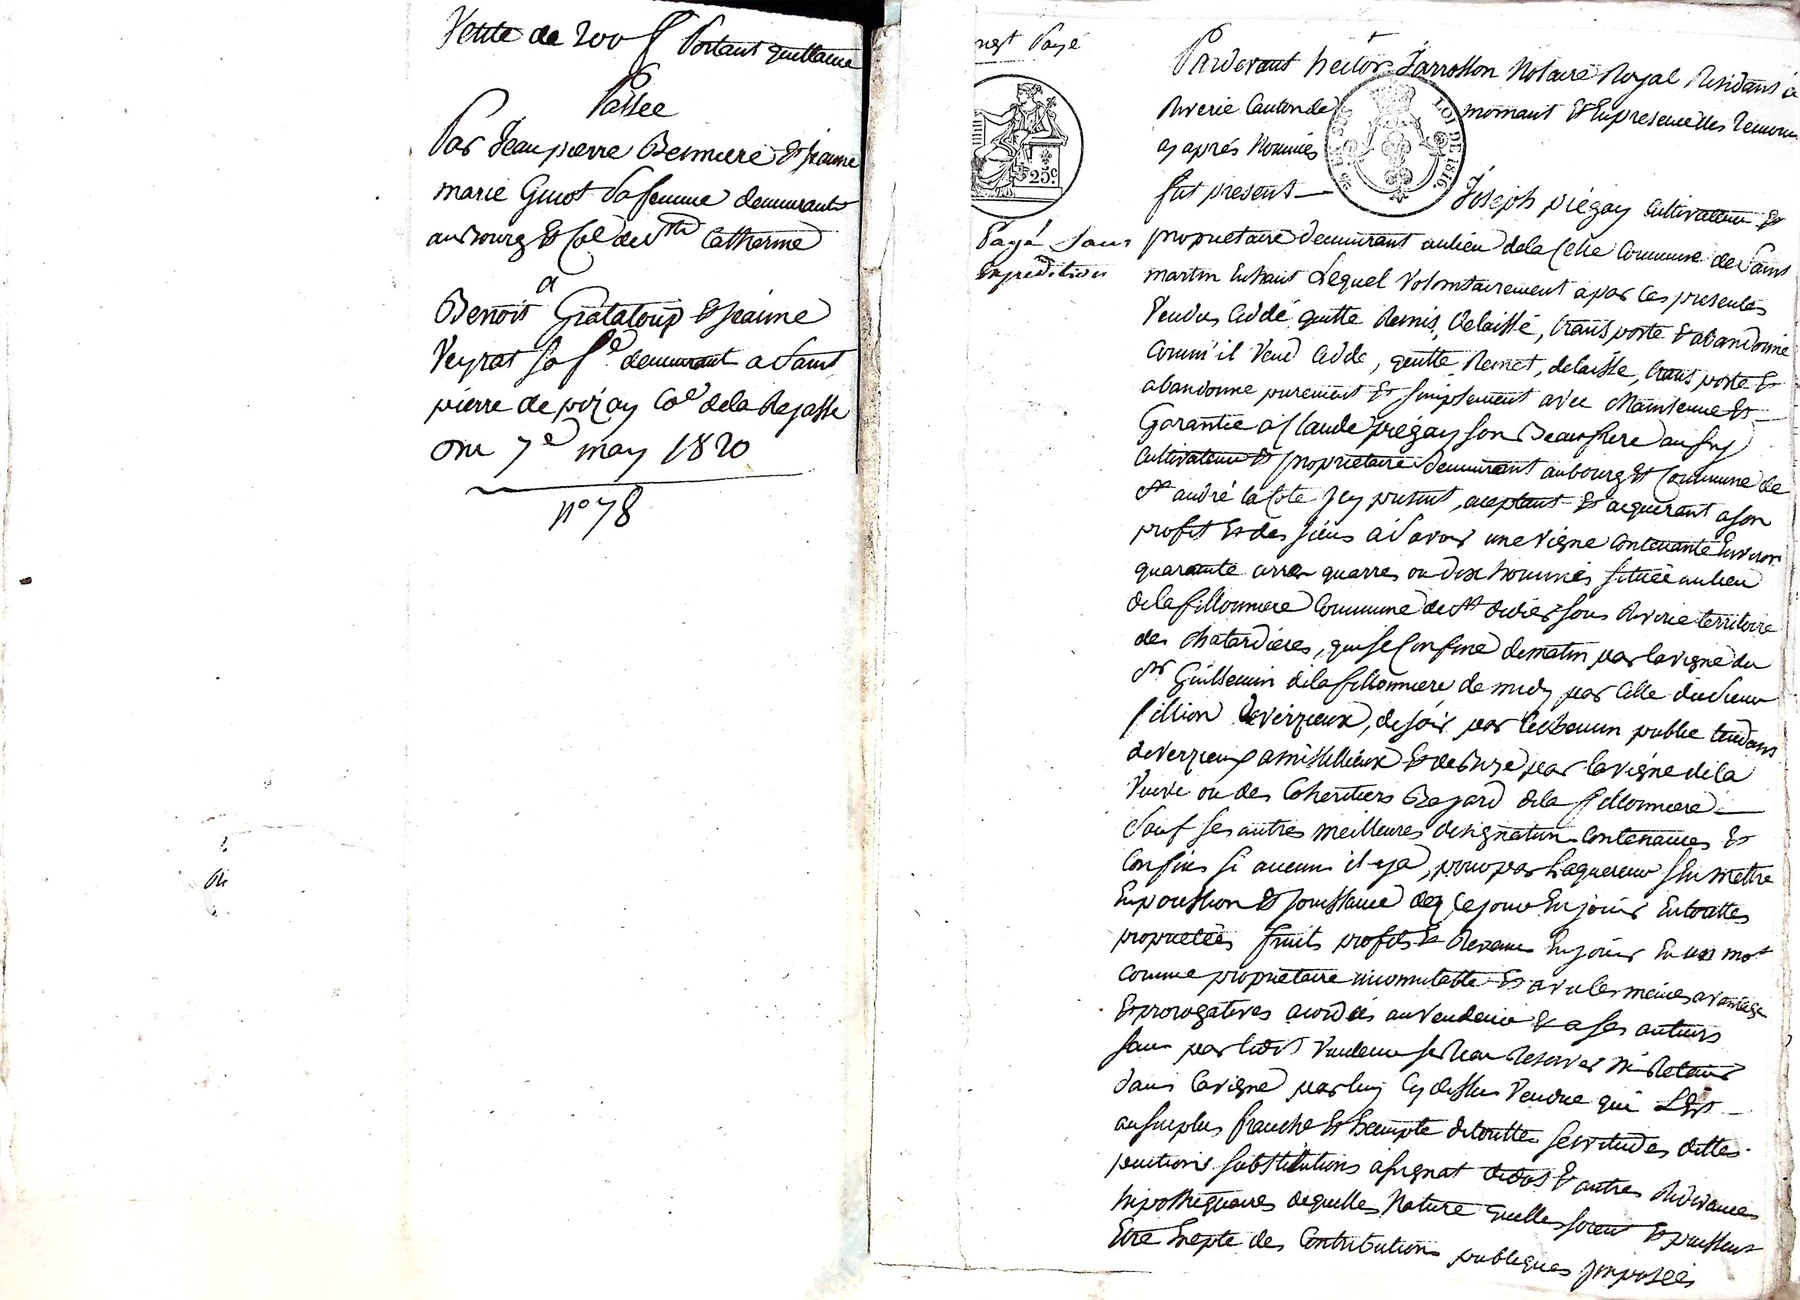 Vente de 200 f portant quittance
Passée
Par Jean pierre Besmiere & jeanne
marie Guiot sa femme demeurants
au Bourg & Cne de Ste Catherine
a
Benoit Grataloup & jeanne
Veyrat sa fe demeurant a Saint
pierre de pizay Cne de la Rajasse
Du 7e may 1820
no 78
payé
25c
Payé Sans
expedition
Pardevant hector Jarrosson Notaire Royal Residant à
Riverie Canton de mornant & En presence des Temoins
cy après Nommés
fut present
LOI DE 1816
Joseph piégay cultivateur &
propriétaire demeurant au lieu de la Côte Commune de Saint
martin En haut Lequel volontairement a par ces presentes
Vendu, cèdé, quitté Remis, delaissé, transporté & abandonné
comm'il vend cède, quitte Remet, delaisse, transporte &
abandonne purement & simplement avec Maintenue &
Garantie a Claude piégay son Beaufrere aussy
cultivateur & propriétaire demeurant au bourg & Commune de
St andré la Côte Icy present, aceptant & acquerant a son
profit & des siens a Savoir une vigne contenante Environ
quarante ares quarrés ou dix hommés située au lieu
de la fillonniere Commune de St didier sous Riverie territoire
des Chatardieres, qui se Confine de matin par la vigne du
Sr Guillermin de la fillonniere de midy par celle du Sieur
fillion de virzieux, de soir par le chemin public tendans
de verzieux a missilieux & de Bize par la vigne de la
Veuve ou des Coheritiers Bajard de la fillonniere
Sauf ses autres meilleures designation Contenances &
Confins si aucuns il y a, pour par L'aquereur s'En mettre
En possession & jouissance dez ce jour En jouir En touttes
proprietées fruits profits & Revenus En jouir En un mot
comme proprietaire incomutable & avec les memes avantages
& prorogatives acordées au Vendeur & a ses auteurs
sans par ledit Vendeur se Rien Reserver ni Retenir
dans la vigne par luy Cy dessus Vendue qui Est
au surplus franche & Exempte de toutte servitudes dettes
pentions substitutions assignat dedos & autres Redevances
hipothequaires de quelles Nature quelles soient & puissent
Etre Exepté des Contributions publiques Imposées